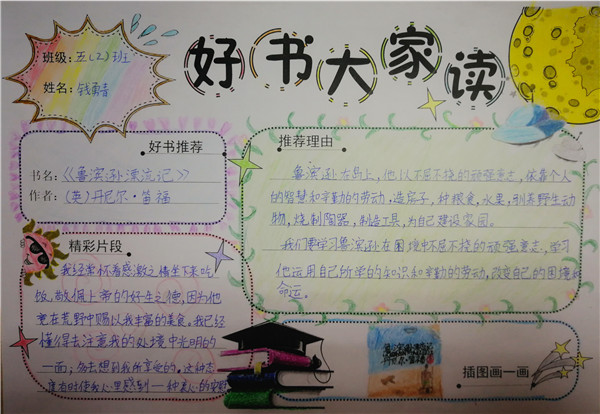 班级:五(2)班
姓名:钱
好书大家读
好书推荐
书名:《鲁滨孙漂流记》
作者:(英)丹尼尔·笛福
推荐理由
鲁滨孙在岛上,他以不屈不挠的顽强意志,依靠个人
的智慧和辛勤的劳动,造房子,种粮食,水果,驯养野生动
物,烧制陶器,制造工具,为自己建设家园。
我们要学习鲁滨孙在困境中不屈不挠的顽强意志,学习
他运用自己所学的知识和辛勤的劳动,改变自己的困境的
命运。
精彩片段
我经常怀着感激之情坐下来吃
饭,敬佩上帝的好生之德,因为他
竟在荒野中赐以我丰富的美食。我已经
懂得去注意我的处境中光明的
一面,多去想到我所享受的。这种态
度有时使我心里感到一种衷心的安慰
插图画一画